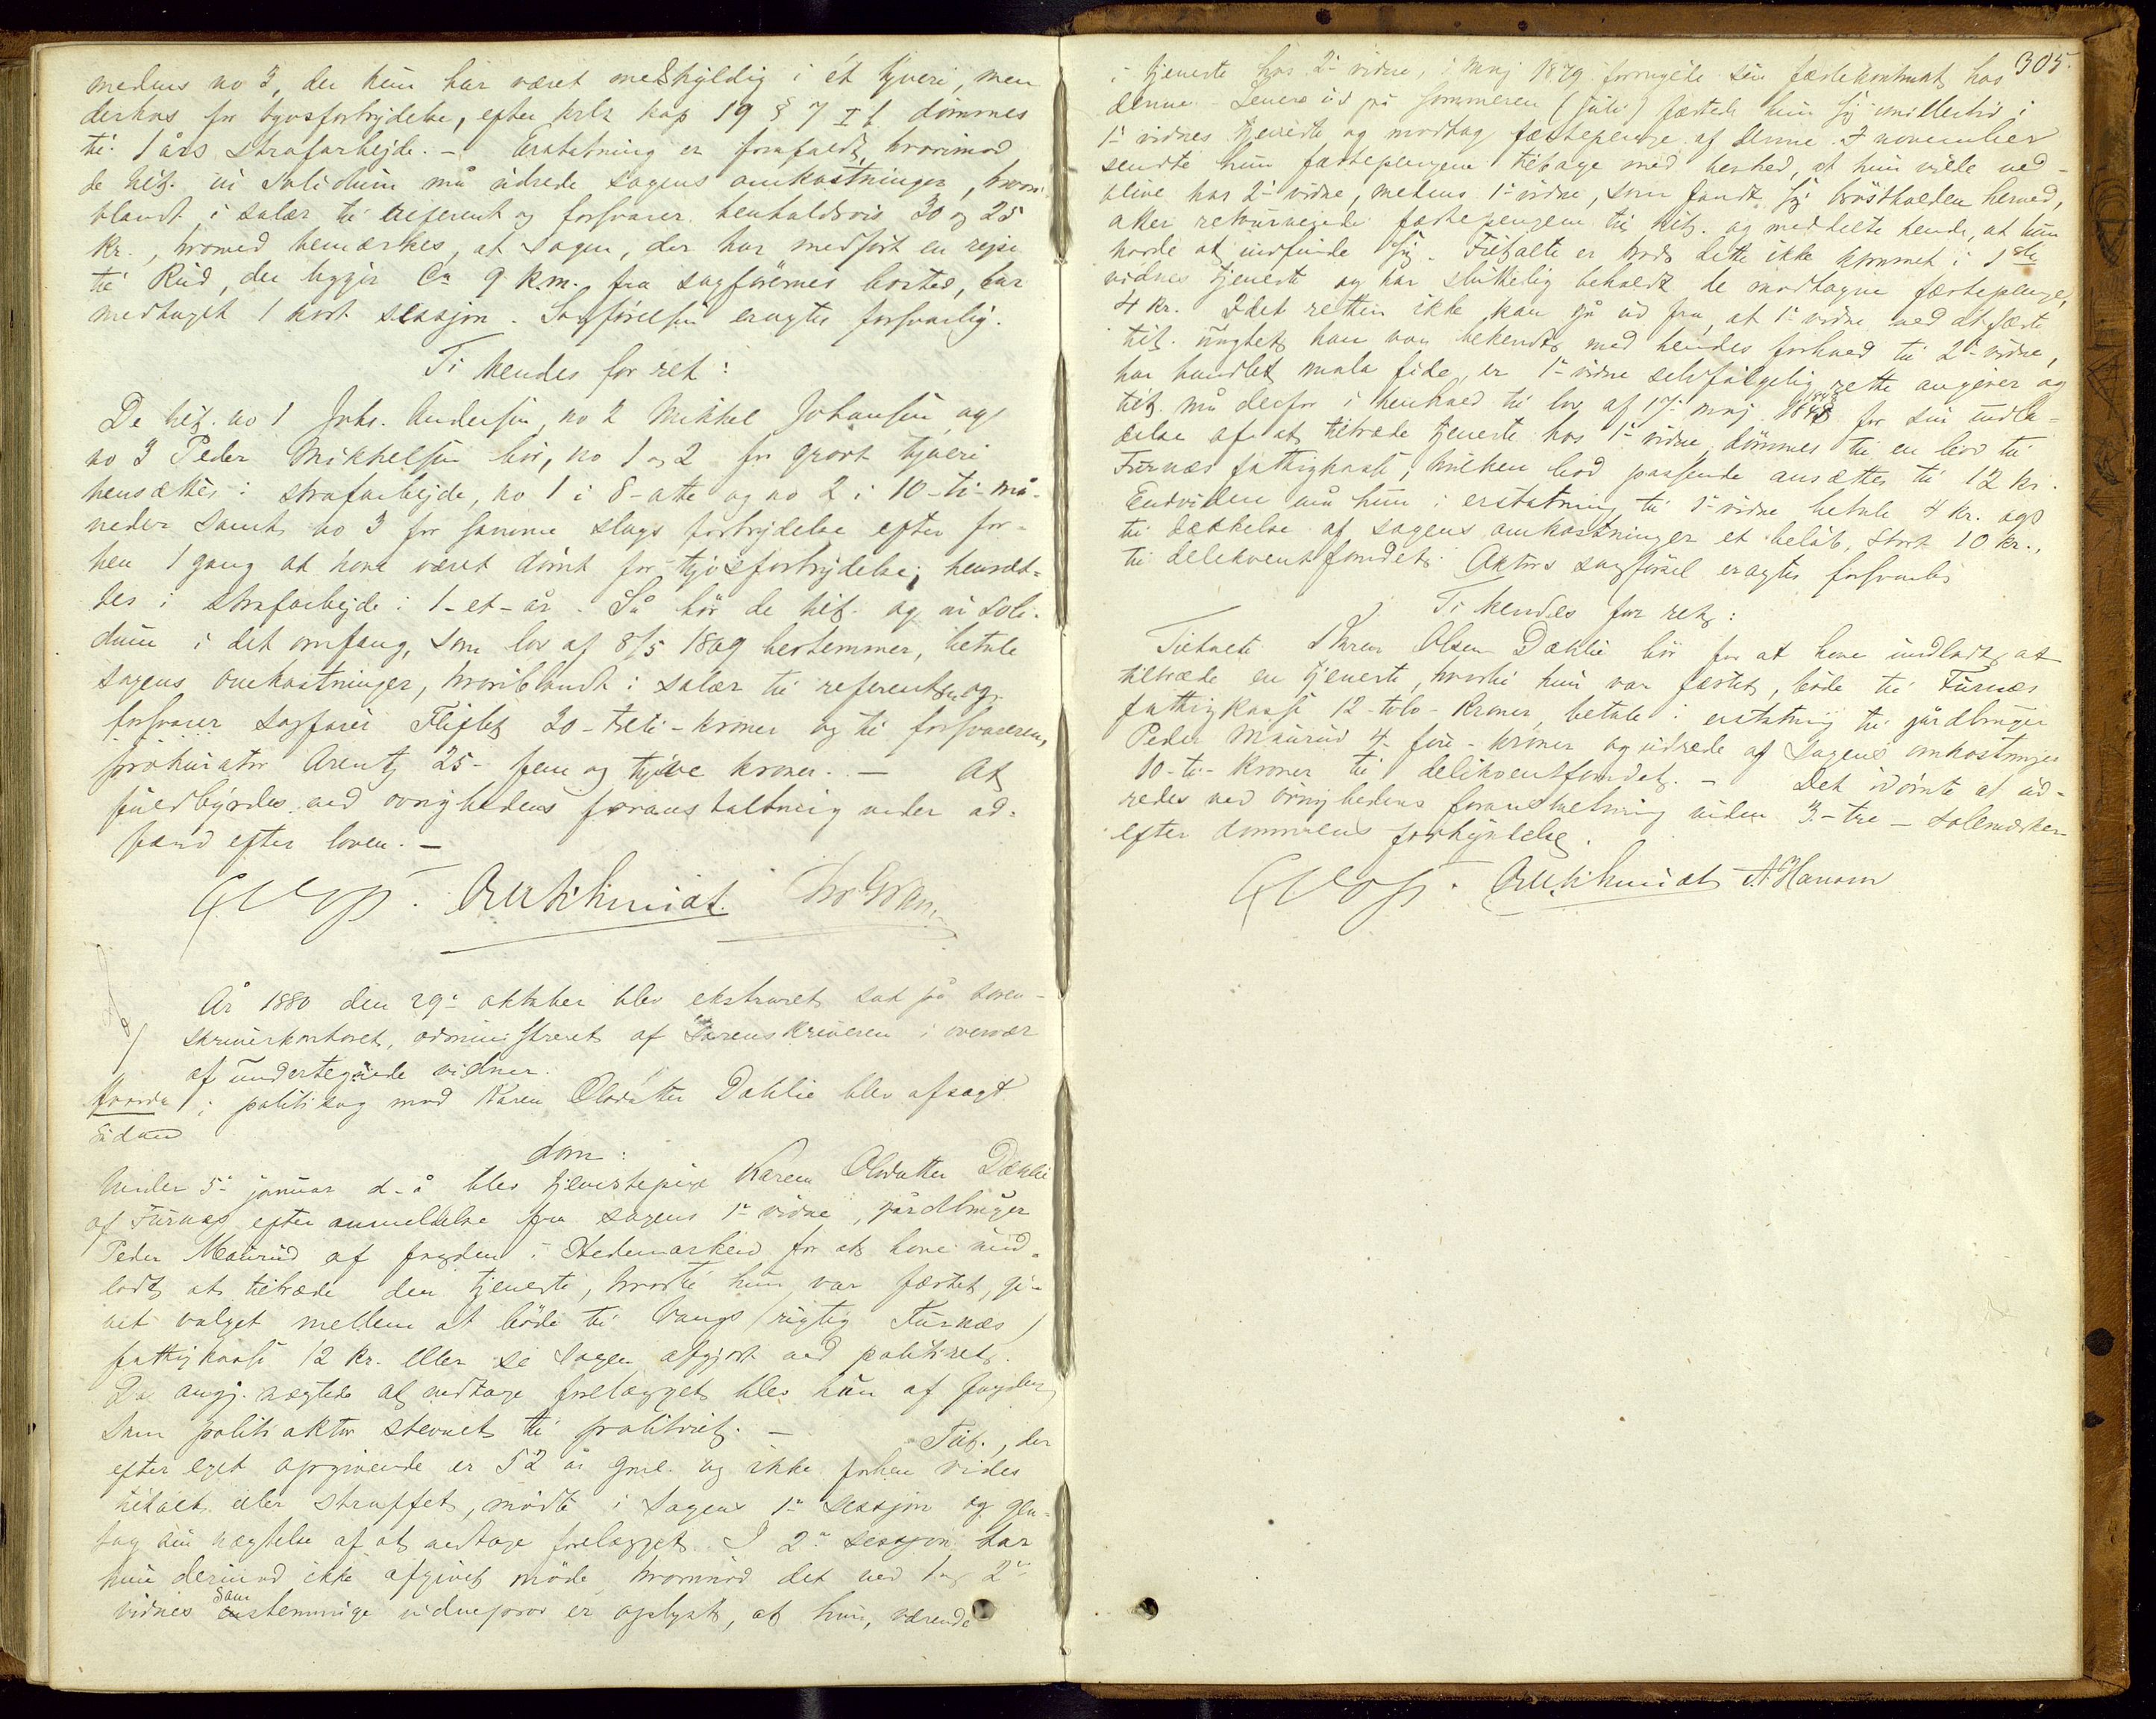 medens no 3, der kun har været medskyldig i ét tyveri, men
derhos for tyvsforbrydelse, efter krlr kap 19 § 7 I f dømmes
til 1 års strafarbejde. – Erstatning er frafaldt, hvorimod
de tilt. in solidum må udrede sagens omkostninger, hvori-
blandt i salær til referent og forsvarer henholdsvis 30 og 25
kr., hvorved bemærkes, at sagen, der har medført en rejse
til Rud, der ligger Ca 9 k.m. fra sagførernes bosted, har
medtaget 1 kort sessjon. Sagførelsen eragtes forsvarlig.
Ti kendes for ret:
De tilt. no 1 Johs. Andersen, no 2 Mikkel Johansen og
no 3 Peder Mikkelsen bør, no 1 og 2 for grovt tyveri
hensættes i strafarbejde, no 1 i 8-otte og no 2 i 10-ti-må-
neder samt no 3 for samme slags forbrydelse efter for-
hen 1 gang at have været dømt for tyvsforbrydelse, hensæt-
tes i strafarbejde i 1-et-år. Så bør de tilt. og in soli-
dum i det omfang, som lov af 8/5 1869 bestemmer, betale
sagens omkostninger, hvoriblandt i salær til referent og
forsvarer sagfører Fliflet 30-treti-kroner og til forsvareren,
prokurator Arentz 25- fem og tyve kroner. – At
fuldbyrdes ved øvrighedens foranstaltning under ad-
færd efter loven. –
År 1880 den 29de oktober blev ekstraret sat på soren-
skriverkontoret, administreret af sorenskriveren i overvær
af undertegnede vidner.
Hvorda i politisag mod Karen Olsdatter Dahlie blev afsagt
sådan
dom:
Under 5te januar d. å blev tjenestepige Karen Olsdatter Dæhlie
af Furnæs efter anmeldelse fra sagens 1ste vidne, gårdbruger
Peder Maurud af fogden i Hedemarken for at have und-
ladt at tiltræde den tjeneste, hvortil hun var fæstet, gi-
vet valget mellem at bøde til Vangs (rigtig Furnæs)
fattigkasse 12 kr. eller se sagen afgjort ved politiret.
Da angj. nægtede at vedtage forelægget blev hun af fogden
som politiaktor stevnet til politiret. – Tilt., der
efter eget opgivende er 52 år gml. og ikke forhen vides
tiltalt eller straffet, mødte i sagens 1ste sessjon og gen-
tog sin nægtelse af at vedtage forelægget. I 2den sessjon har
hun derimod ikke afgivet møde, hvorimod det ved 1ste og 2det
vidnes samstemmige vidneprov er oplyst, at hun, værende
305.
i tjeneste hos 2det vidne, i maj 1879 fornyede sin fæstekontrakt hos
denne. Senere ud på sommeren (juli) fæstede hun sig imidlertid i
1ste vidnes tjeneste og modtog fæstepenge af denne. I november
sendte hun fæstepengene tilbage med besked, at hun vilde ved-
blive hos 2det vidne, medens 1ste vidne, som fandt sig brøstholden herved,
atter returnerede fæstepengene til tilt. og meddelte hende, at hun
havde at indfinde sig. Tiltalte er trods dette ikke kommet i 1ste
vidnes tjeneste og har sluttelig beholdt de modtagne fæstepenge,
4 kr. Idet retten ikke kan gå ud fra, at 1ste vidne ved at fæste
tilt. uagtet han var bekendt med hendes forhold til 2det vidne,
har handlet mala fide, er 1ste vidne selvfølgelig rette angiver og
tilt. må derfor i henhold til lov af 17de maj 1848 for sin undla-
delse af at tiltræde tjeneste hos 1ste vidne dømmes til en bod til
Furnæs fattigkasse, hvilken bod passende ansættes til 12 kr.
Endvidere må hun i erstatning til 1ste vidne betale 4 kr. og
til dækkelse af sagens omkostninger et beløb, stort 10 kr.,
til delikventfondet. Aktors sagførsel eragtes forsvarlig
Ti kendes for ret:
Tiltalte Karen Olsen Dæhlie bør for at have undladt at
tiltræde en tjeneste, hvortil hun var fæstet, bøde til Furnæs
fattigkasse 12-tolv-kroner, betale i erstatning til gårdbruger
Peder Maurud 4-fire-kroner og udrede af sagens omkostninger
10-ti-kroner til delikventfondet. – Det idømte at ud-
redes ved øvrighedens foranstaltning inden 3-tre-solemærker
efter dommens forkyndelse.
A Hanson